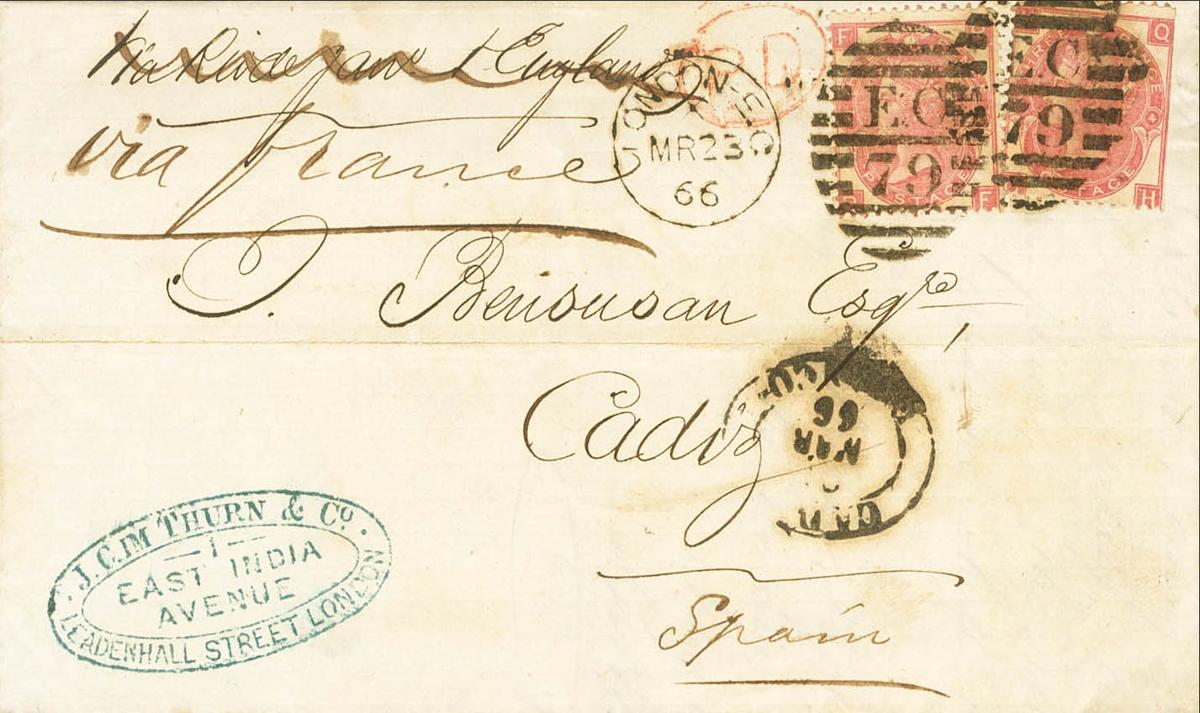 Via Rio de Jan° & England
via France
P D
LONDON-E.C
X
MR23
66
F
EC
79
POSTAGE
F
Q
EC
79
POSTAGE
4
H
J. Bensusan Esqre,
Cadiz
CADIZ
MAR
66
Spain
J. C. IM THURN & Co.
1
EAST INDIA
AVENUE
LEADENHALL STREET LONDON